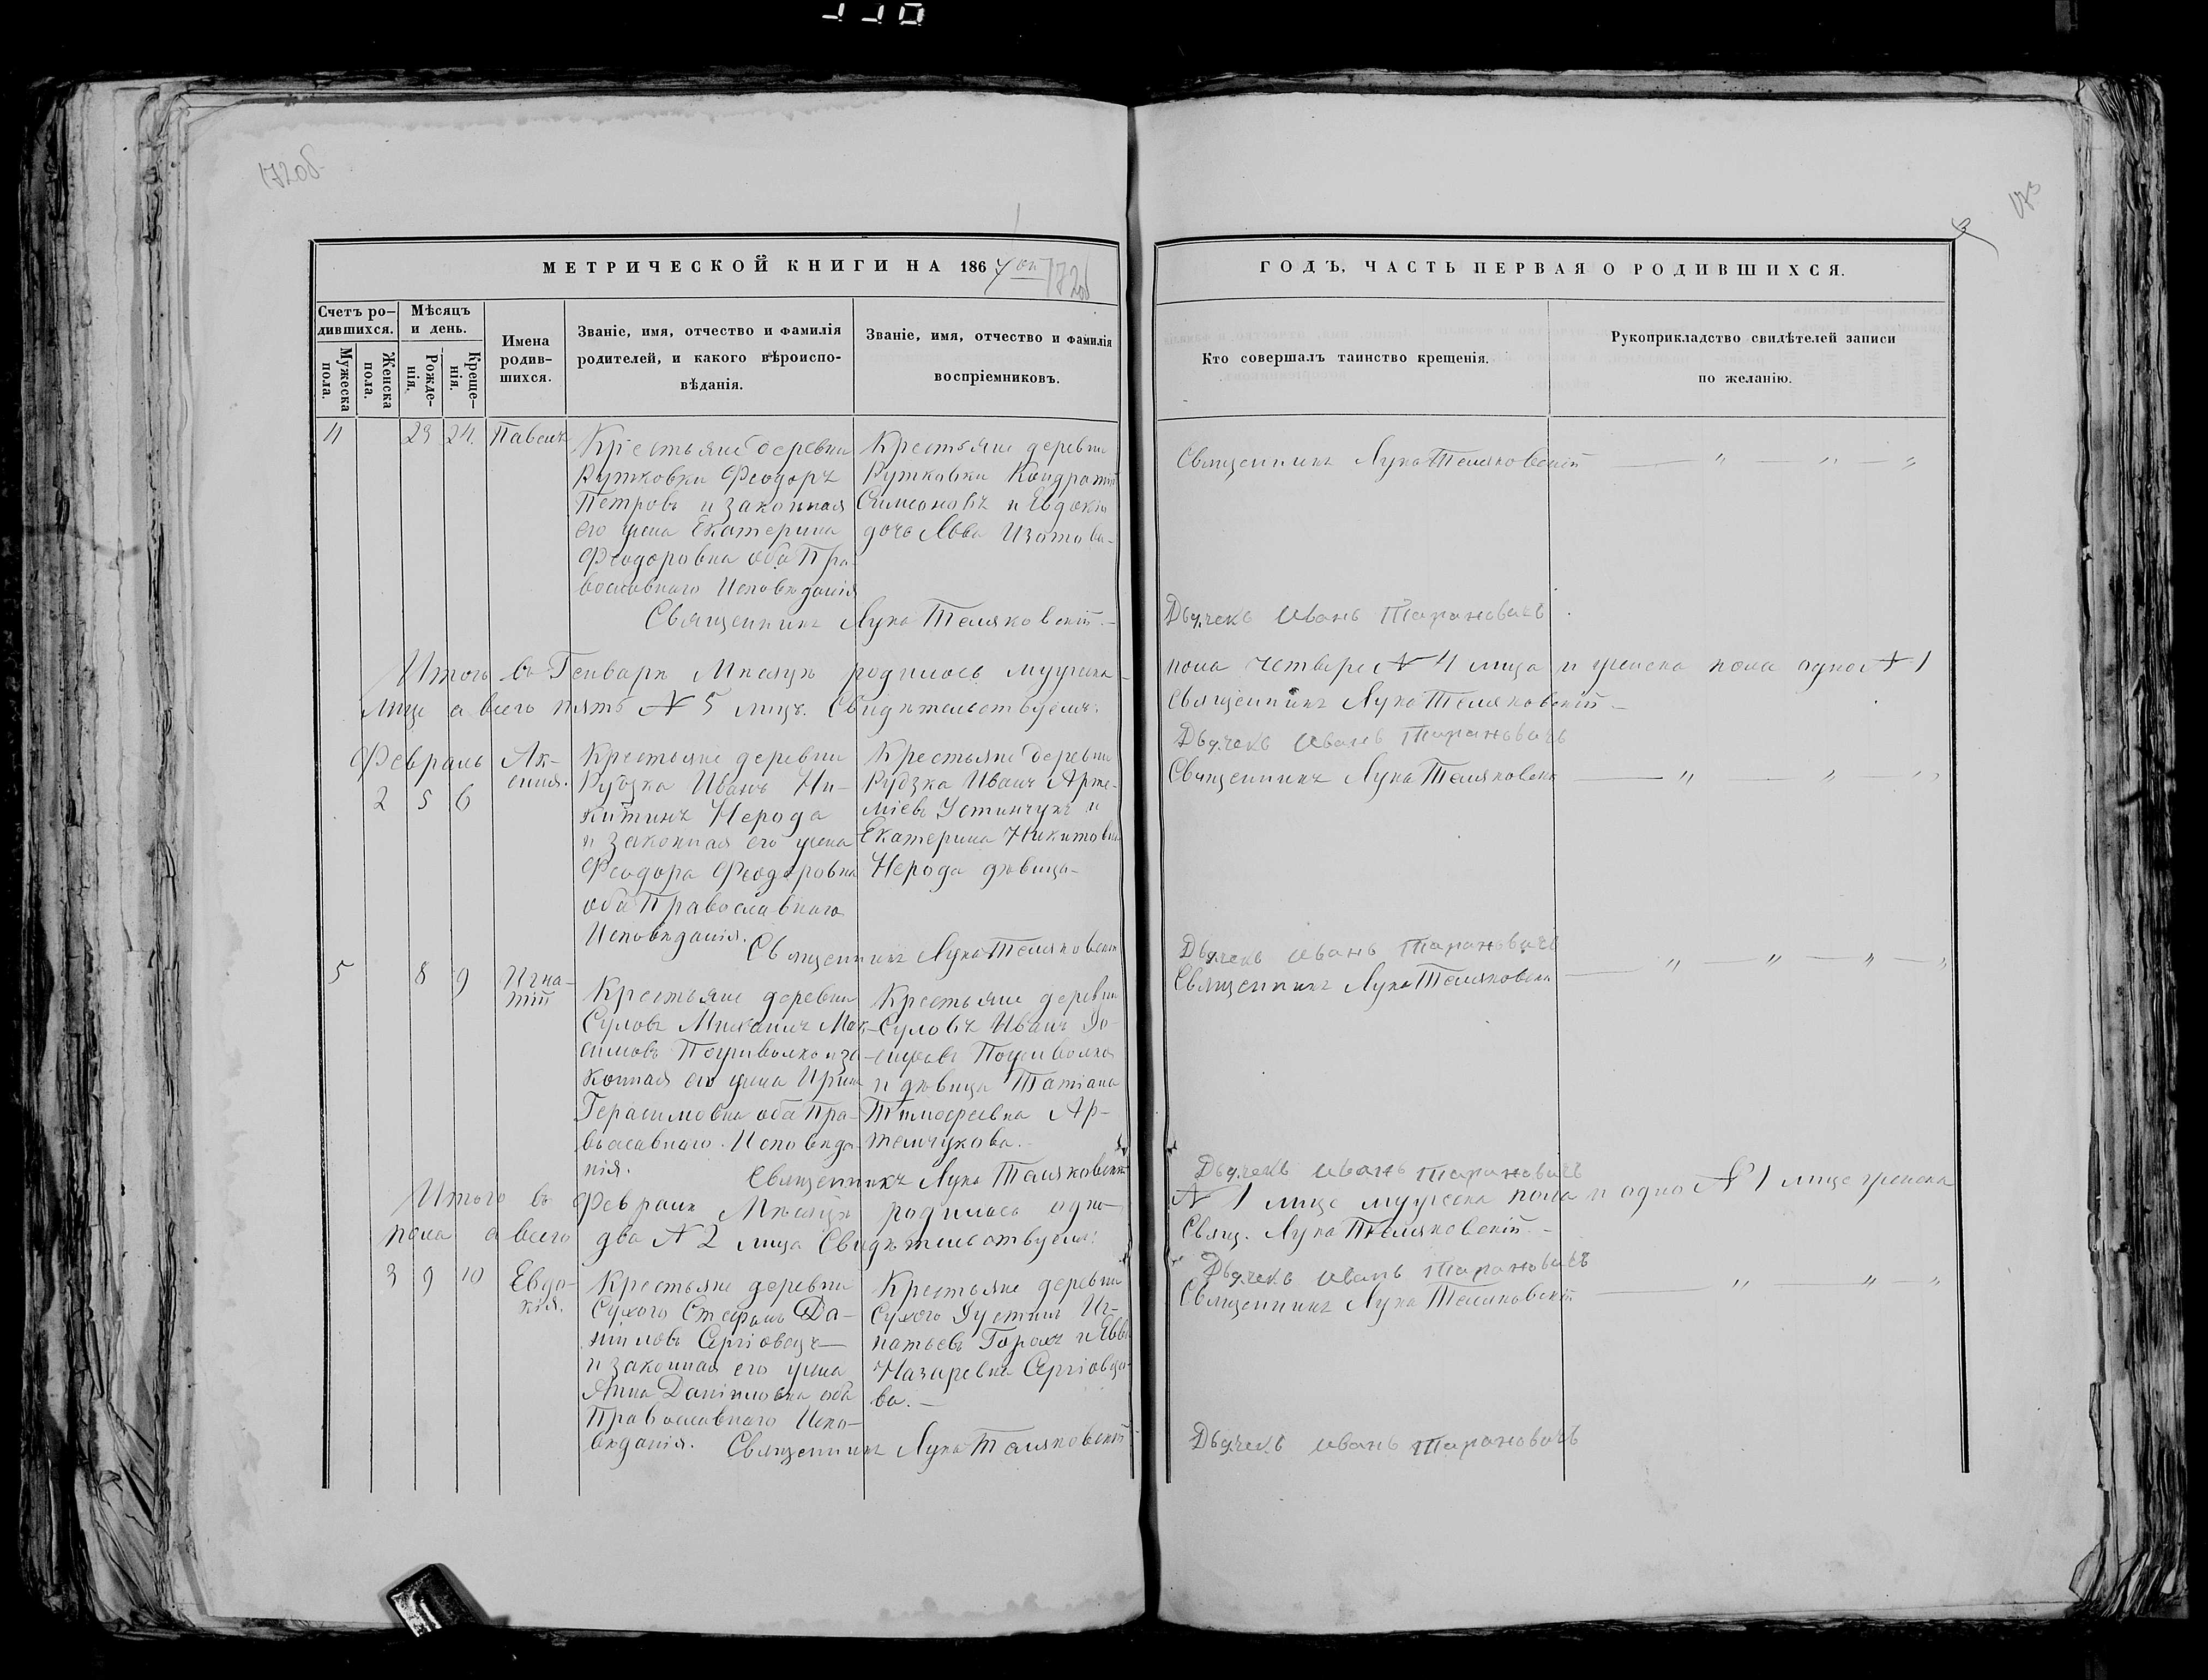 172об
173
МЕТРИЧЕСКОЙ КНИГИ НА 1867 ой
172об
ГОДЪ, ЧАСТЬ ПЕРВАЯ О РОДИВШИХСЯ.
Счетъ ро-
дившихся.
Мужеска
пола.
Женска
пола.
Мѣсяцъ
и день.
Рожде-
нія.
Креще-
нія.
Имена
родив-
шихся.
Званіе, имя, отчество и фамилія
родителей, и какого вѣроиспо-
вѣданія.
Званіе, имя, отчество и фамилія
воспріемниковъ.
Кто совершалъ таинство крещенія.
Рукоприкладство свидѣтелей записи
по желанію.
4 23 24. Павелъ
Крестьяне деревни
Рутковки Феодоръ
Петровъ и законная
его жена Екатерина
Феодоровна оба Пра-
вославнаго Исповѣданія
Крестьяне деревни
Рутковки Кондратій
Симеоновъ и Евдокія
дочь Льва Изотова-
Священникъ Лука Теляковскій — " — " — "
Священникъ Лука Теляковскій.-
Дьячекъ Иванъ Тарановичъ
Итого въ Генварѣ Мѣсяцѣ родилось мужеска-
пола четыре № 4 лица и женска пола одно № 1
лице а всего пять № 5 лицъ. Свидѣтельствуемъ:
Священникъ Лука Теляковскій.-
Дьячекъ Иванъ Тарановичъ
Февраль
2 5 6 Ак-
синія.
Крестьяне деревни
Рудзка Иванъ Ни-
китинъ Нерода
и законная его жена
Феодора Феодоровна
оба Православнаго
Исповѣданія.
Крестьяне деревни
Рудзка Иванъ Арте-
міевъ Устинчукъ и
Екатерина Никитовна
Нерода дѣвица-
Священникъ Лука Теляковскій — " — " — "
Священникъ Лука Теляковскій
Дьячекъ Иванъ Тарановичъ
5 8 9 Игна-
тій
Крестьяне деревни
Суловъ Михаилъ Мак-
симовъ и за-
конная его жена Ирина
Герасимовна оба Пра-
вославнаго Исповѣда-
нія.
Крестьяне деревни
Суловъ Иванъ
и дѣвица Татіана
Тимофеевна Ар-
темчукова.-
Священникъ Лука Теляковскій — " — " — " — "
Священникъ Лука Теляковскій
Дьячекъ Иванъ Тарановичъ
Итого въ Февралѣ Мѣсяцѣ родилось одно-
№ 1 лице мужеска пола и одно № 1 лице женска
пола а всего два № 2 лица Свидѣтельствуемъ:
Свящ. Лука Теляковскій.-
Дьячекъ Иванъ Тарановичъ
3 9 10 Евдо-
кія.
Крестьяне деревни
Сухого Стефанъ Да-
ниловъ
и законная его жена
Анна Даніиловна оба
Православнаго Испо-
вѣданія.
Крестьяне деревни
Сухого Іустинъ Иг-
натьевъ Горохъ и
Назаревна
ва.-
Священникъ Лука Теляковскій — " — " — "
Священникъ Лука Теляковскій
Дьячекъ Иванъ Тарановичъ